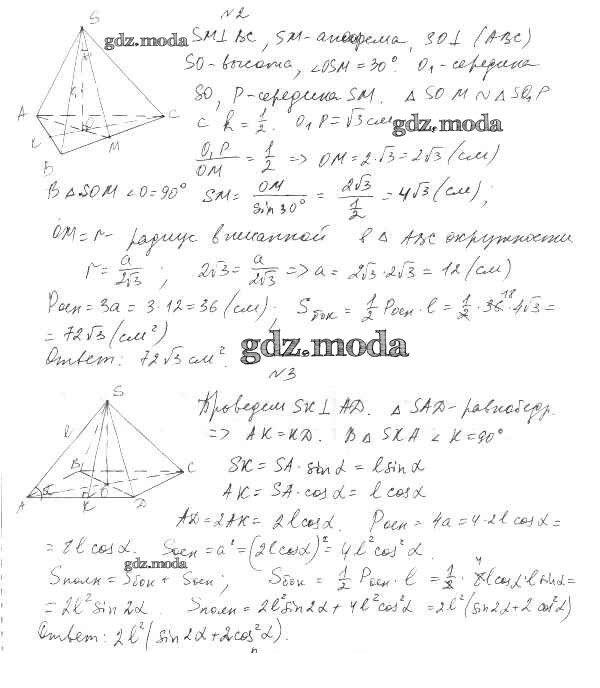 №2
S
A
B
C
M
SM⊥BC, SM-апофема, SO⊥(ABC)
SO-высота, ∠OSM=30°. O₁-середина
SO, P-середина SM. △SOM∽△SO₁P
с k=1/2. O₁P=√3 см
O₁P/OM = 1/2 => OM=2·√3=2√3 (см)
В △SOM ∠O=90° SM= OM/sin30° = 2√3/(1/2) = 4√3 (см);
OM=r- радиус вписанной в △ABC окружности
r= a/2√3 ; 2√3= a/2√3 => a= 2√3·2√3 = 12 (см)
Pосн=3a= 3·12=36 (см); Sбок= 1/2 Pосн·l= 1/2·36 18·4√3=
= 72√3 (см²)
Ответ: 72√3 см².
gdz.moda
gdz.moda
gdz.moda
№3
S
l
A
B
C
K
D
O
α
Проведем SK⊥AD. △SAD-равнобедр.
=> AK=KD. В △SKA ∠K=90°
SK= SA·sinα= l sinα
AK= SA·cosα= l cosα
AD=2AK= 2l cosα. Pосн= 4a=4·2l cosα=
= 8l cosα. Sосн=a²=(2l cosα)²=4l²cos²α.
gdz.moda
Sполн=Sбок+Sосн; Sбок= 1/2 Pосн·l = 1/2·8 4 l cosα·l sinα=
=2l² sin2α. Sполн= 2l² sin2α+4l² cos²α =2l²(sin2α+2cos²α)
Ответ: 2l²(sin2α+2cos²α).